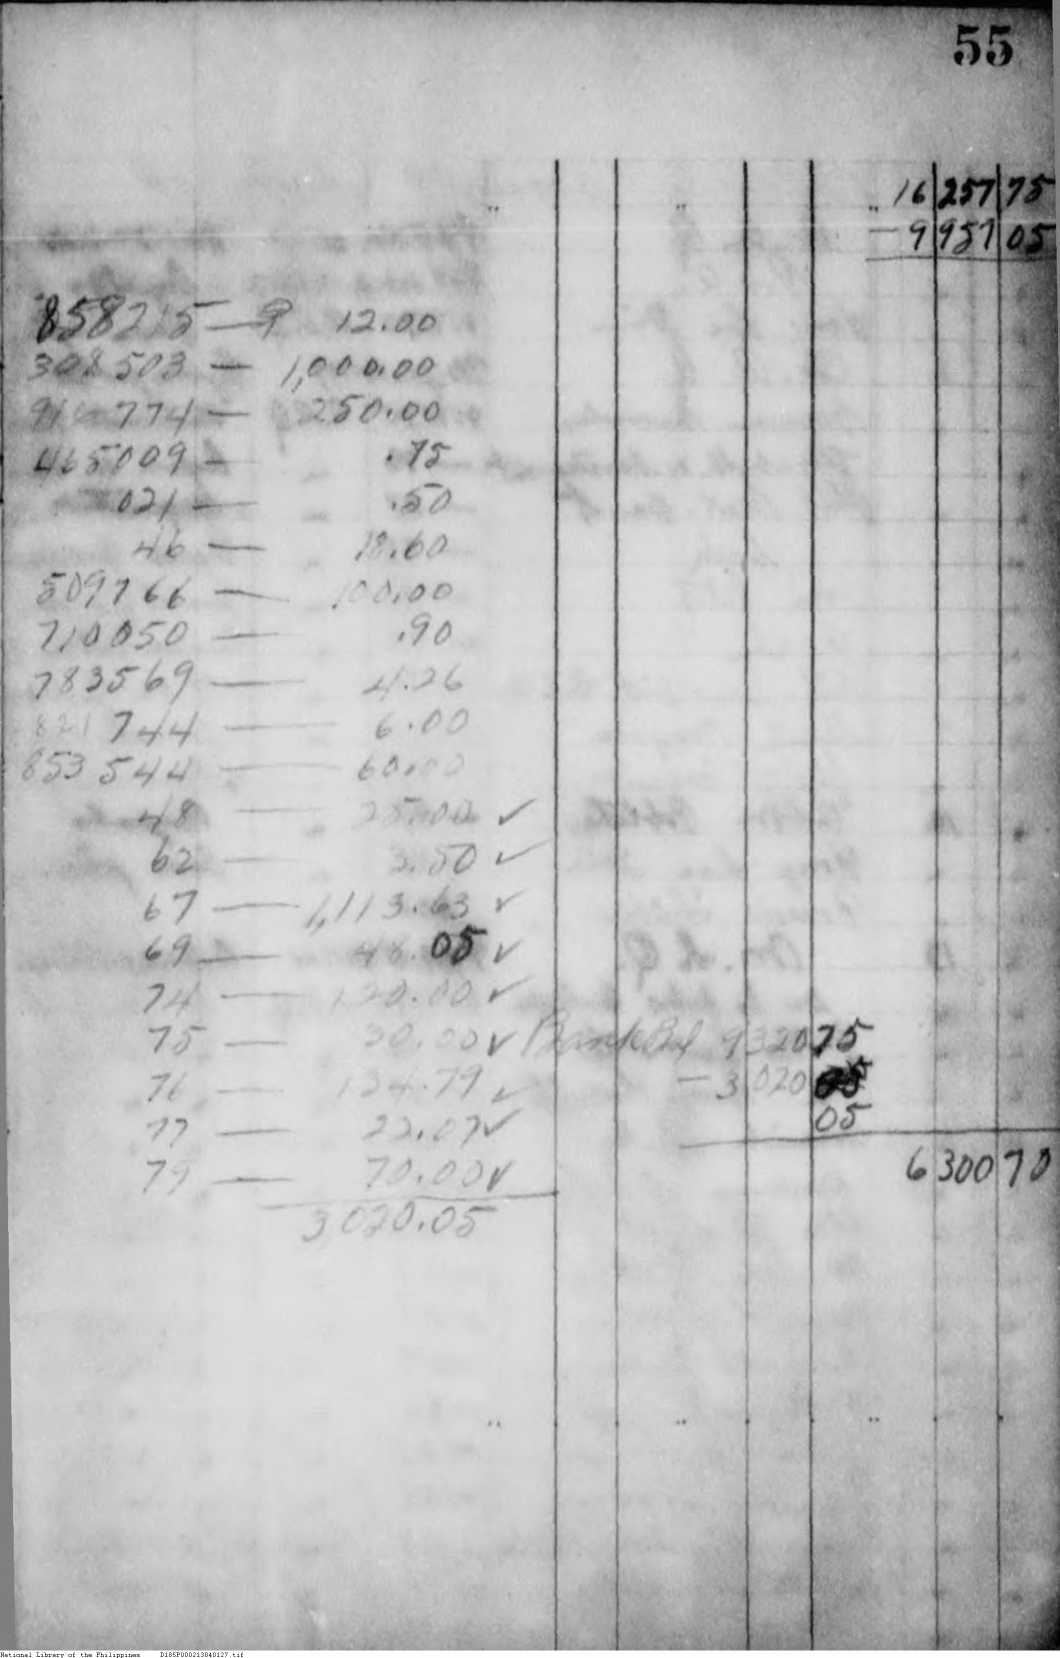 55
16 257 75
- 9 957 05
858215 — ₱ 12.00
308503 — 1,000.00
774 — 250.00
465009 — .75
021 — .50
46 — 18.60
509766 — 100.00
710050 — .90
783569 — 4.26
821744 — 6.00
853544 — 60.00
48 — 25.00 ✓
62 — 3.50 ✓
67 — 1,113.63 ✓
69 — 48.05 ✓
74 — 120.00 ✓
75 — 30.00 ✓ Bank Bal 9 320 75
76 — 134.79 ✓ - 3 020 05
77 — 22.07 ✓ 05
79 — 70.00 ✓ 6 300 70
3020.05
National Library of the Philippines D185P000213040127.tif